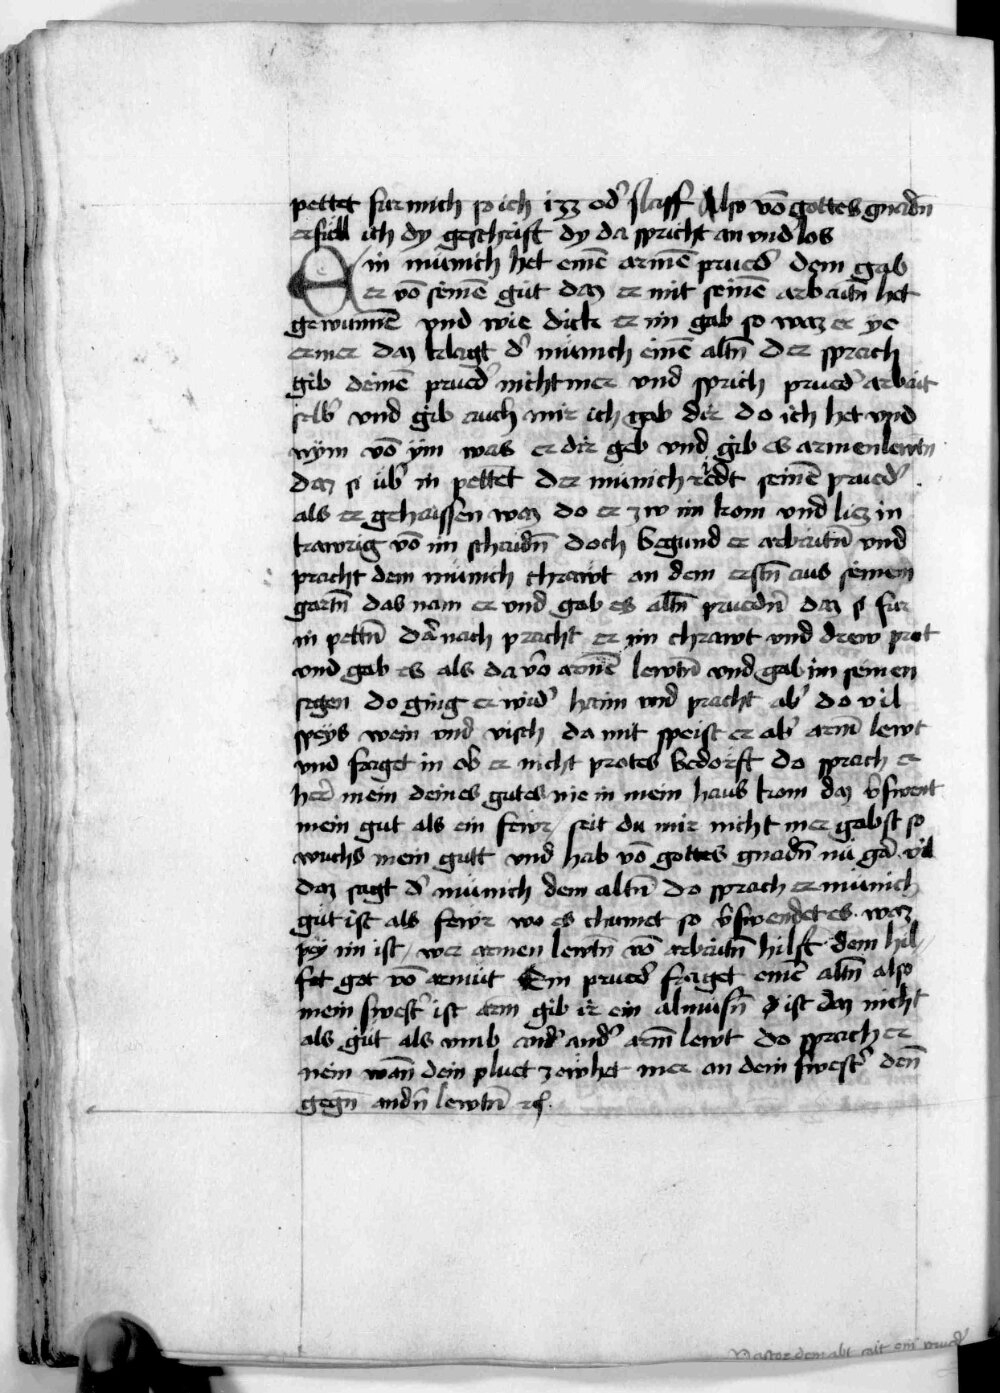 pettet fur mich so ich izz od' slaff Also vō gottes gnadn̄
erfüll ich dy geschrift dy da spricht an vnd los
Ein münich het einē armē prued' dem gab
er vō seinē güt daz er mit seinē arbaitn̄ het
gewunnē vnd wie dick er im gab so waz er ye
ermer daz klagt d' münich einē altn̄ der sprach
gib deinē prued' nicht mer vnd sprich prued' arbait
selb' vnd gib auch mir ich gab dir do ich het vnd
nym vō ym was er dir geb vnd gib es armen lewtn̄
daz si üb' in pettet der münich redt seinē prued'
als er gehaissen waz do er zw im kom vnd liez in
trawrig vō im schaidn̄ doch begund er arbaitn̄ vnd
pracht dem münich chrawt an dem erstn̄ aus seinem
gartn̄ das nam er vnd gab es altn̄ pruedn̄ daz si fur
in pettn̄ dar nach pracht er im chrawt vnd drew prot
vnd gab es als da vō armē lewtn̄ vnd gab im seinen
segen do ging er wid' haim vnd pracht ab' do vil
speys wein vnd visch da mit speist er ab' arm̄ lewt
vnd fraget in ob er nicht protes bedorft do sprach er
her mein deines gutes nie in mein haus kom daz v'swent
mein gut als ein fewr / seit du mir nicht mer gabst so
wuchs mein gutt vnd hab vō gottes gnadn̄ nu gar vil
daz sagt d' münich dem altn̄ do sprach er münich
güt ist als fewr wo es chumet so v'swendet es waz
pey im ist / wer armen lewtn̄ vō arbaitn̄ hilft dem hil//
fet got vō armüt Ein prued' fraget einē altn̄ also
mein swest' ist arm gib ir ein almüsn̄ ist daz nicht
als güt als vmb and' arm̄ lewt do sprach er
nein wan̄ dein pluet zewhet mer an dein swest' den̄
gegn̄ andn̄ lewtn̄ rc.
Pastor dem abt